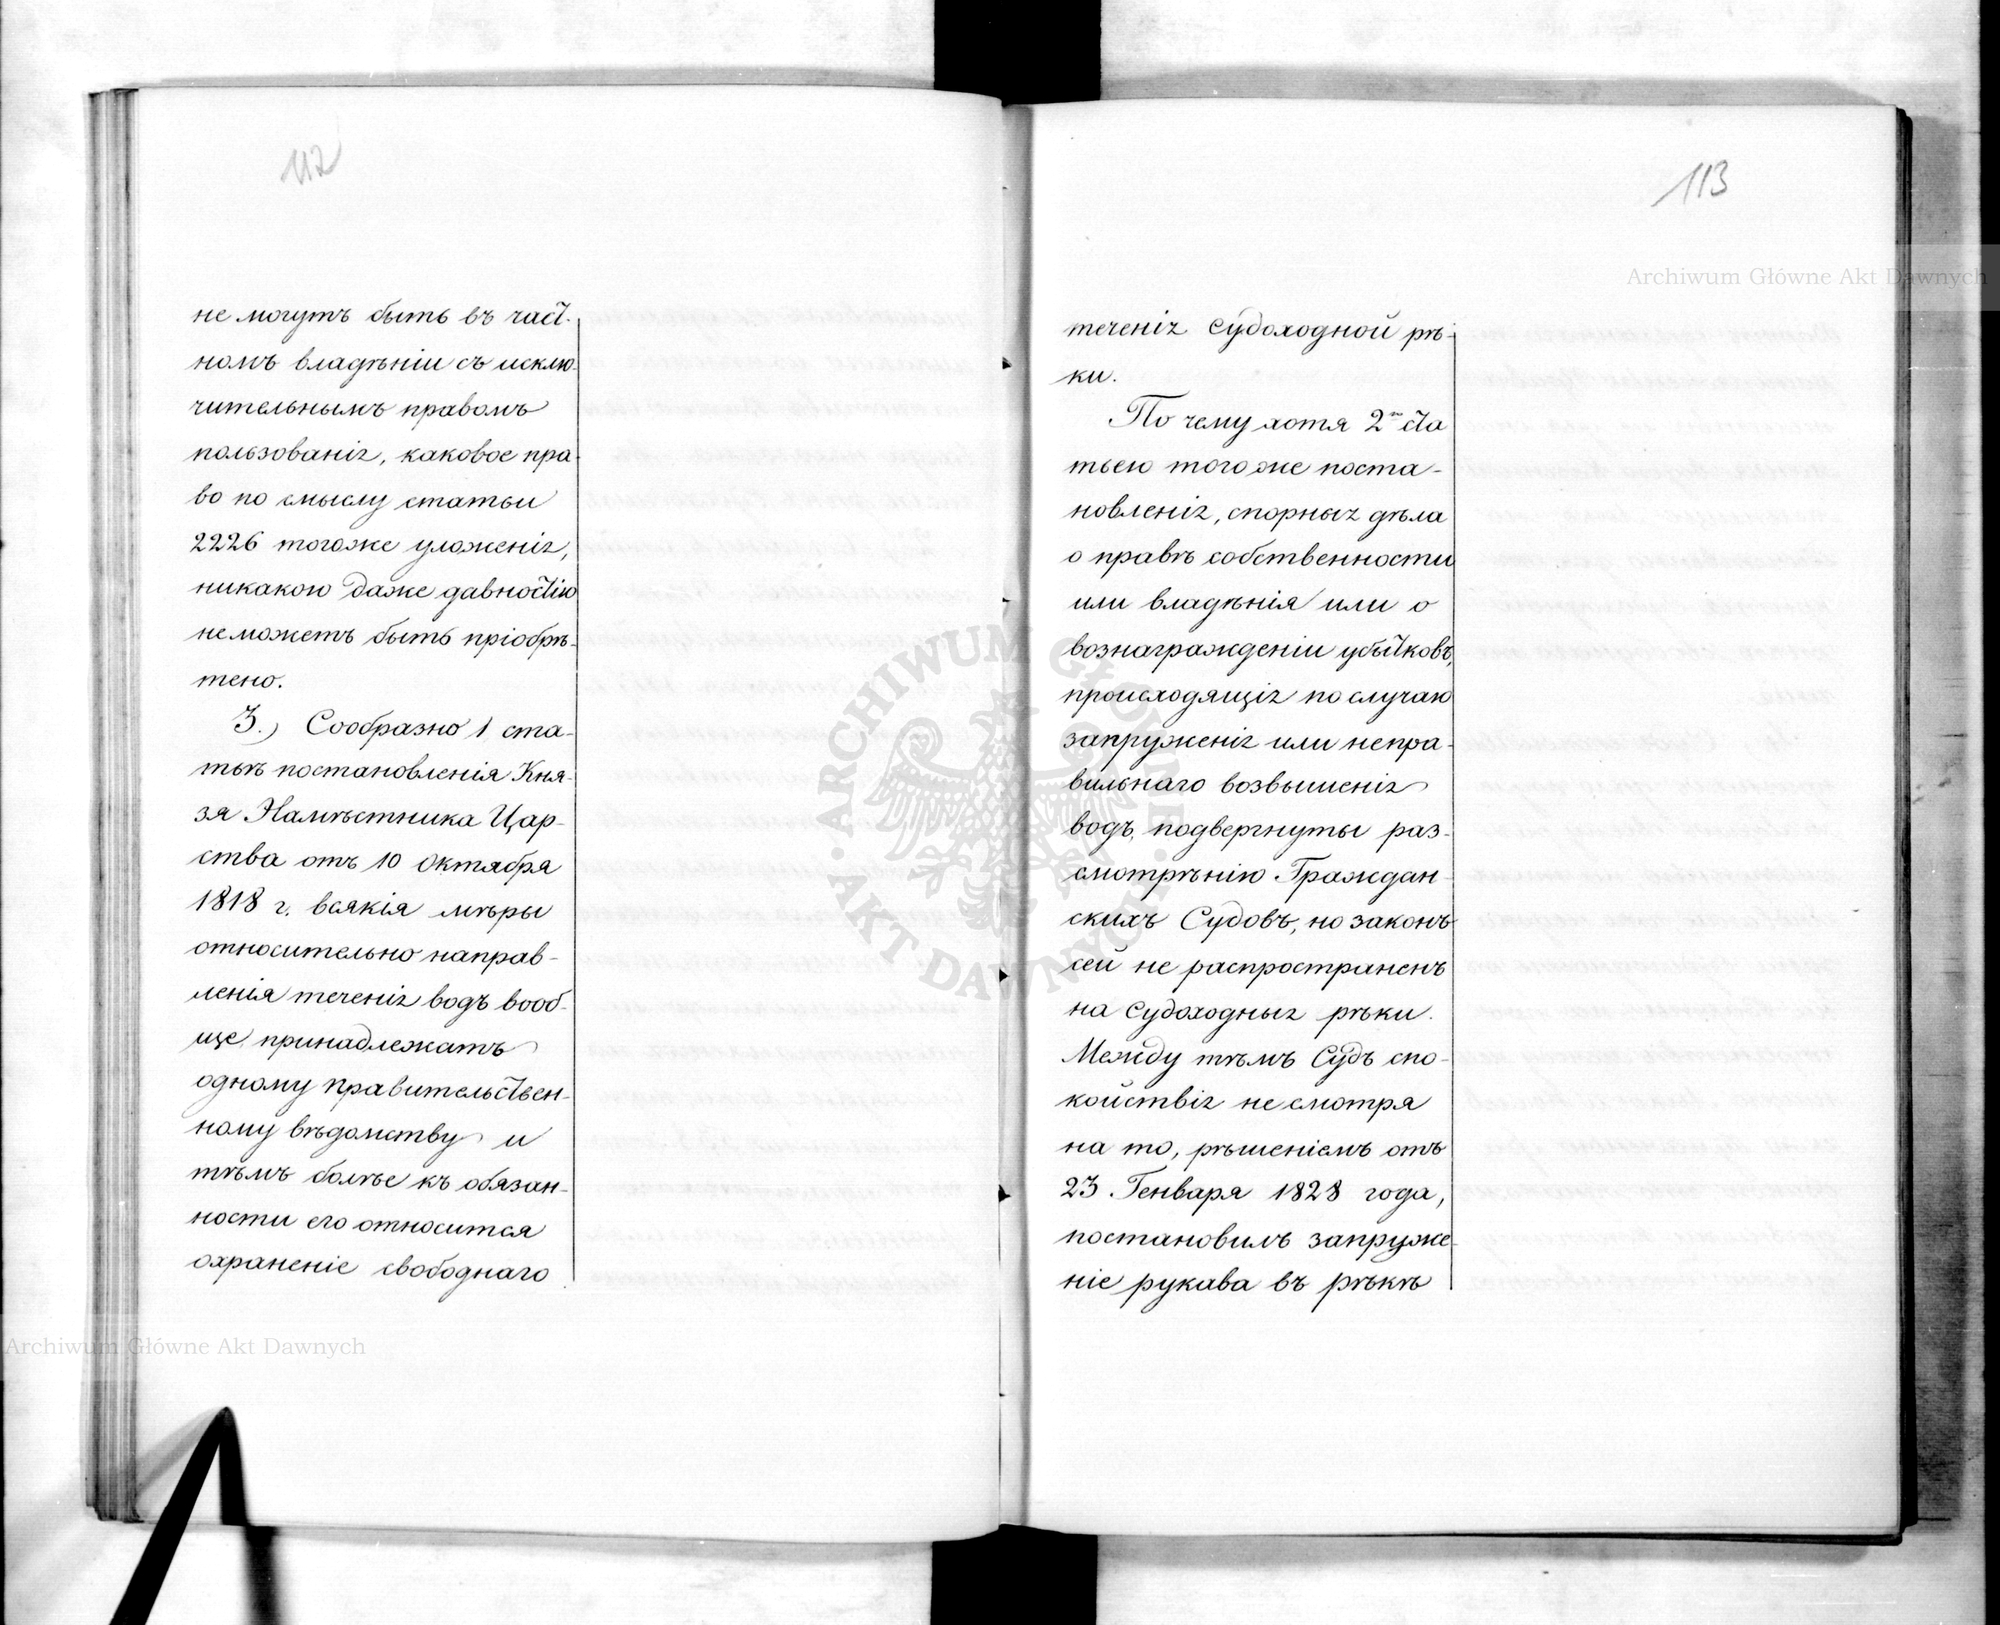 112
не могутъ быть въ част-
номъ владѣніи съ исклю-
чительнымъ правомъ
пользованія, каковое пра-
во по смыслу статьи
2226 тогоже уложенія,
никакою даже давностію
не можетъ быть пріобрѣ-
тено.
3.) Сообразно 1 ста-
тьѣ постановленія Кня-
зя Намѣстника Цар-
ства отъ 10 Октября
1818 г. всякія мѣры
относительно направ-
ленія теченія водъ вооб-
ще, принадлежатъ
одному правительствен-
ному вѣдомству и
тѣмъ болѣе къ обязан-
ности его относится
охраненіе свободнаго
113
теченія судоходной рѣ-
ки.
По чему хотя 2ю ста
тьею того же поста-
новленія, спорныя дѣла
о правѣ собственности
или владѣнія или о
вознагражденіи убытковъ,
происходящія по случаю
запруженія или непра-
вильнаго возвышенія
водъ, подвергнуты раз-
смотрѣнію Граждан-
скихъ Судовъ, но законъ
сей не распространенъ
на судоходныя рѣки.
Между тѣмъ Судъ спо-
койствія не смотря
на то, рѣшеніемъ отъ
23 Генваря 1828 года,
постановилъ запруже-
ніе рукава въ рѣкѣ
Archiwum Główne Akt Dawnych
Archiwum Główne Akt Dawnych
· ARCHIWUM GŁÓWNE · AKT DAWNYCH